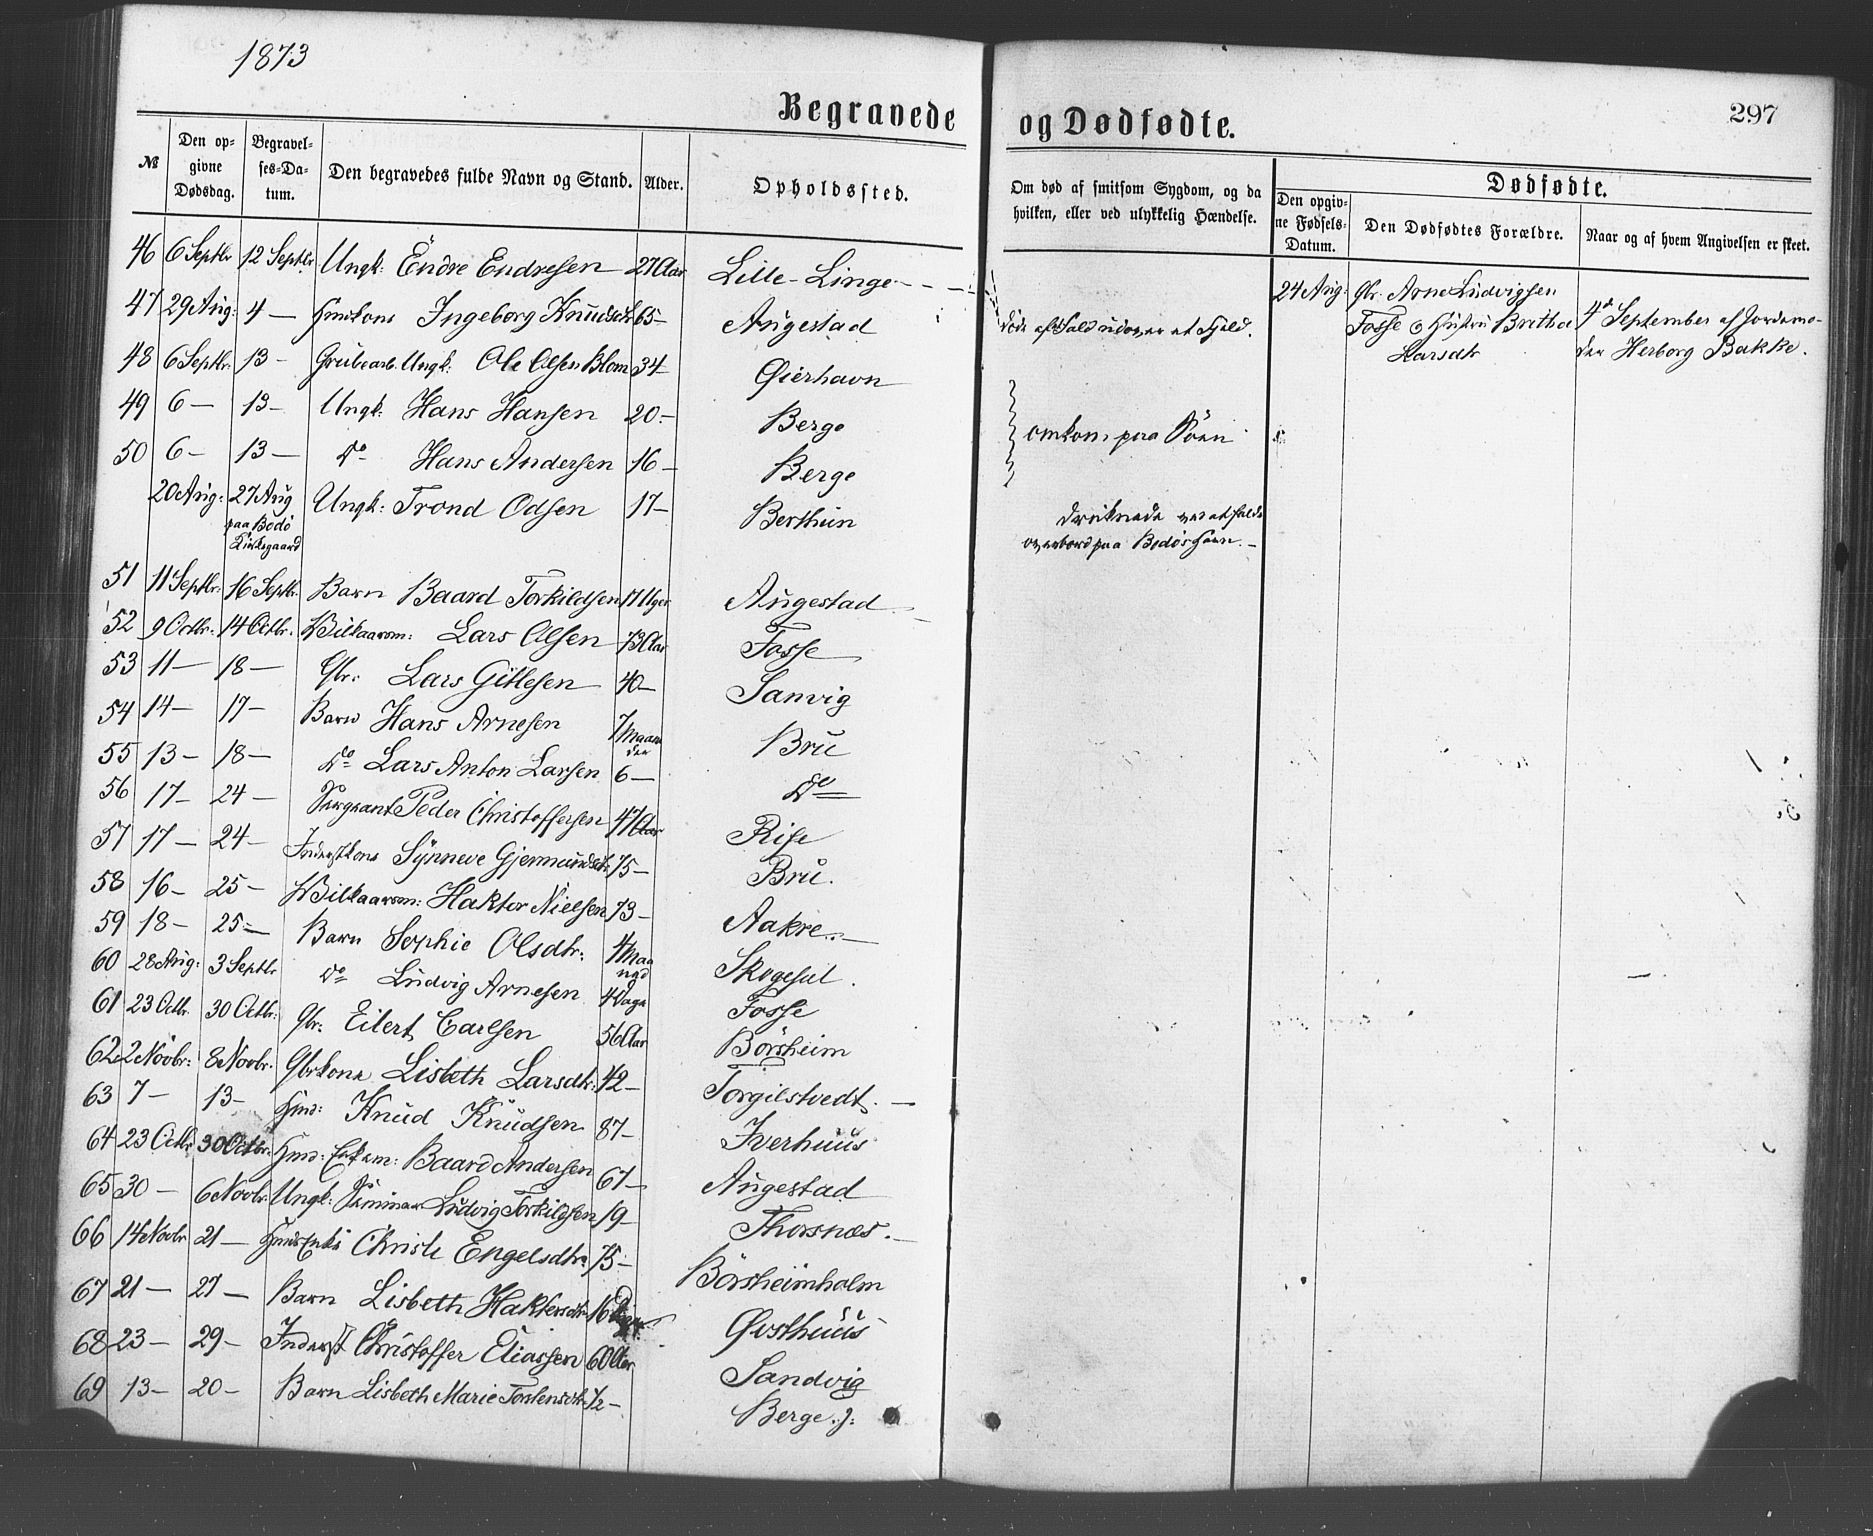 1873
Begravede og Dødfødte.
297
№ Den opgivne Dødsdag. Begravelses-Datum. Den begravedes fulde Navn og Stand. Alder. Opholdssted. Om død af smitsom Sygdom, og da hvilken, eller ved ulykkelig Hændelse.
Dødfødte.
Den opgivne Fødsels-Datum. Den Dødfødtes Forældre. Naar og af hvem Angivelsen er skeet.
46 6 Septbr 12 Septbr Ungk: Endre Endresen 27 Aar Lille-Linge
24 Aug: Gbr. Arne Ludvigsen Fosse o Hustru Britha Larsdtr 4de September af Jordemoder Herborg Bakke.
47 29 Aug: 4 — Hmdkone Ingeborg Knudsdtr 65— Augestad døde af Fald udover et Fjeld.
48 6 Septbr: 13 — Grubearb. Ungk: Ole Olsen Blom 34 Øierhavn
49 6 — 13 — Ungk: Hans Hansen 20 — Berge omkom paa Søen
50 6 — 13 — do Hans Andersen 16 — Berge
20 Aug: 27 Aug paa Bodö Kirkegaard Ungk: Trond Odsen 17 — Berthun druknede ved at falde overbord paa Bodös Havn. —
51 11 Septbr: 16 Septbr. Barn Baard Torkildsen 17 Uger Augestad
52 9 Octbr. 14 Octbr. Vilkaarsm: Lars Olsen 73 Aar Fosse
53 11 — 18 — Gbr: Lars Gitlesen 40 — Sanvig
54 14 — 17 — Barn Hans Arnesen 7 Maaneder Bru
55 13 — 18 — do Lars Anton Larsen 6 — do
56 17 — 24 — Sergeant Peder Christoffersen 47 Aar Rise
57 17 — 24 — Inderstkone Synneve Gjermundsdtr 75 — Bru.
58 16 — 25 — Vilkaarsm: Haktor Nielsen 73 — Aakre
59 18 — 25 — Barn Sophie Olsdtr: 4 Maa Skogesæl.
60 28 Aug: 3 Septbr do Ludvig Arnesen 4 Dage Fosse
61 23 Octbr. 30 Octbr: Gbr: Eilert Carlsen 56 Aar Börsheim
62 2 Novbr: 8 Novbr. Gbrkone Lisbeth Larsdtr: 42 — Torgilstvedt. —
63 7 — 13 — Hmd: Knud Knudsen 87 — Iverhuus
64 23 Octbr 30 Octbr. Hmd: Enkem: Baard Andersen 67 — Augestad
65 30 — 6 Novbr Ungk: Seminar Ludvig Torkildsen 19 — Thorsnes. —
66 14 Novbr 21 — Hmds Enke Christi Engelsdtr 75 — Börsheimholm
67 21 — 27 — Barn Lisbeth Haktorsdtr 16 Dage Østhuus
68 23 — 29 — Inderst Christoffer Eliassen 60 Aar Sandvig
69 13 — 20 — Barn Lisbeth Marie Torstensdtr 1/2 — Berge. J: